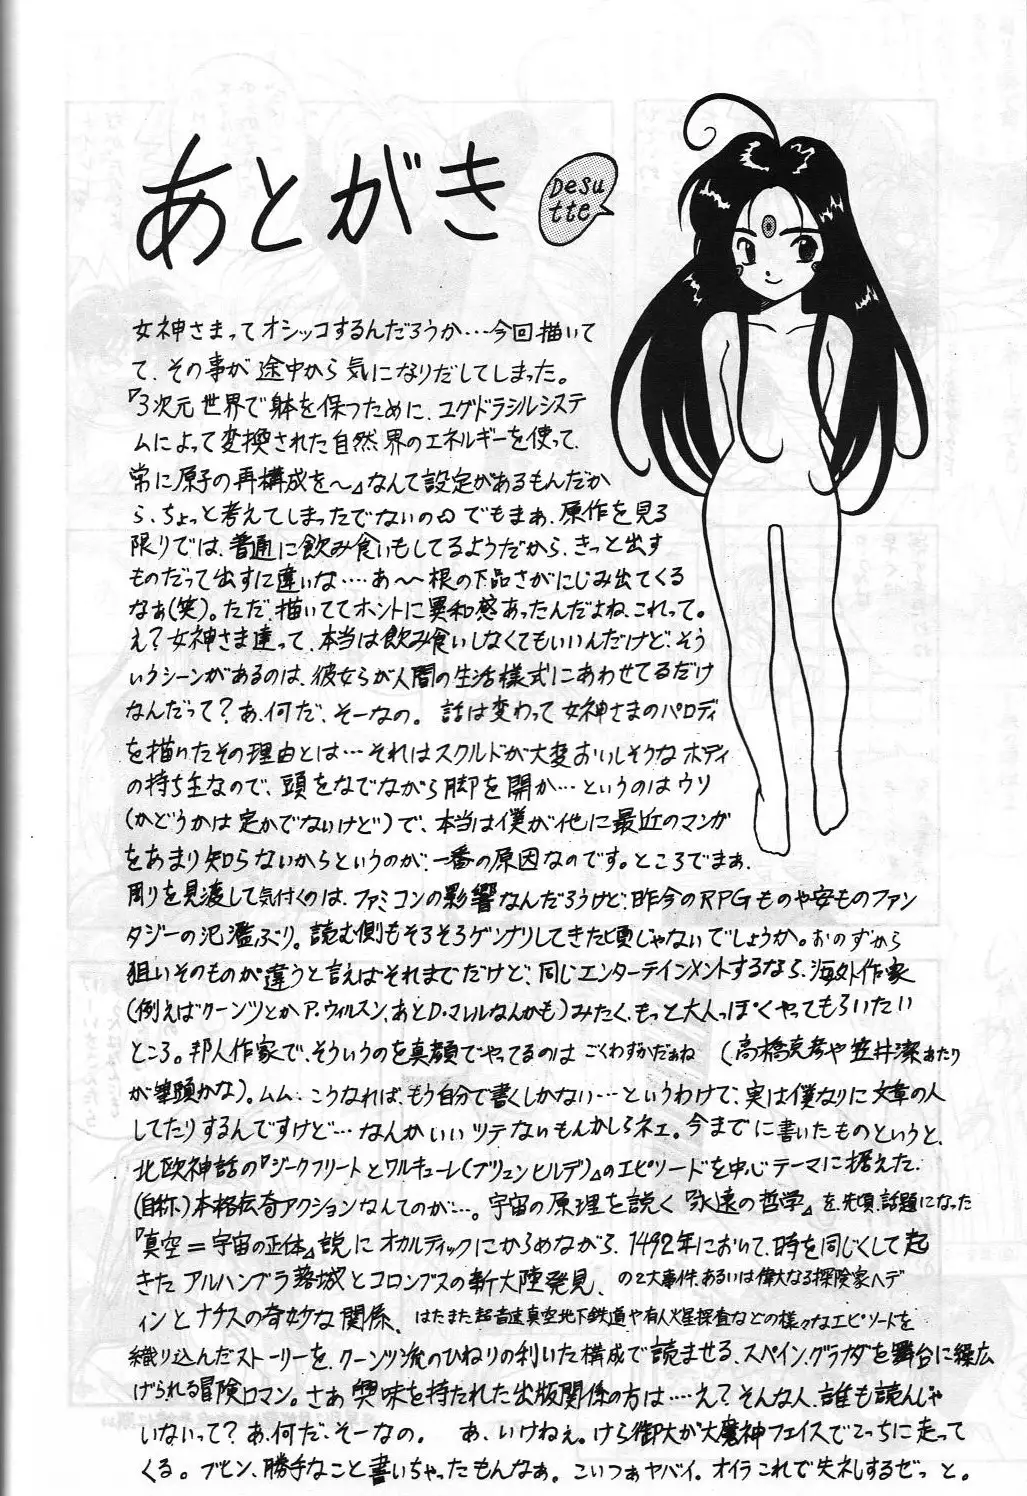 あとがき
Desu
tte
女神さまってオシッコするんだろうか…今回描いて
て、その事が途中から気になりだしてしまった。
『3次元世界で躰を保つために、ユグドラシルシステ
ムによって変換された自然界のエネルギーを使って、
常に原子の再構成を〜』なんて設定があるもんだか
ら、ちょっと考えてしまったでないの でもまぁ、原作を見る
限りでは、普通に飲み食いもしてるようだから、きっと出す
ものだって出すに違いな‥‥あ〜〜根の下品さがにじみ出てくる
なぁ(笑)。ただ、描いててホントに異和感あったんだよね、これって。
え?女神さま達って、本当は飲み食いしなくてもいいんだけど、そう
いうシーンがあるのは、彼女らが人間の生活様式にあわせてるだけ
なんだって?あ、何だ、そーなの。話は変わって女神さまのパロディ
をあまり知らないからというのが、一番の原因なのです。ところでまぁ、
周りを見渡して気付くのは、ファミコンの影響なんだろうけど、昨今のRPGものや安ものファン
タジーの氾濫ぶり。読む側もそろそろゲンナリしてきた頃じゃないでしょうか。おのずから
狙いそのものが違うと言えばそれまでだけど、同じエンターテインメントするなら、海外作家
(例えばクーンツとかP.ウィルスン、あとD.マレルなんかも)みたく、もっと大人っぽくやってもらいたい
ところ。邦人作家で、そういうのを真顔でやってるのはごくわずかだぁね (高橋克彦や笠井潔あたり
が筆頭かな)。ムム‥こうなれば、もう自分で書くしかない…というわけで、実は僕なりに文章の人
してたりするんですけど…なんかいいツテないもんかしらネェ。今までに書いたものというと、
北欧神話の『ジークフリートとワルキューレ(ブリュンヒルデ)』のエピソードを中心テーマに据えた、
(自称)本格伝奇アクションなんてのが…。宇宙の原理を説く『永遠の哲学』を、先頃、話題になった
『真空=宇宙の正体』説にオカルティックにからめながら、1492年において、時を同じくして起
きたアルハンブラ落城とコロンブスの新大陸発見、の2大事件、あるいは偉大なる探険家ヘデ
ィンとナチスの奇妙な関係、はたまた超音速真空地下鉄道や有人火星探査などの様々なエピソードを
織り込んだストーリーを、クーンツ流のひねりの利いた構成で読ませる、スペイン、グラナダを舞台に繰広
げられる冒険ロマン。さぁ興味を持たれた出版関係の方は‥‥え?そんな人、誰も読んじゃ
いないって?あ、何だ、そーなの。 あ、いけねぇ。けら御大が大魔神フェイスでこっちに走って
くる。ブヒン、勝手なこと書いちゃったもんなぁ。こいつぁヤバイ。オイラこれで失ネしするぜっと。